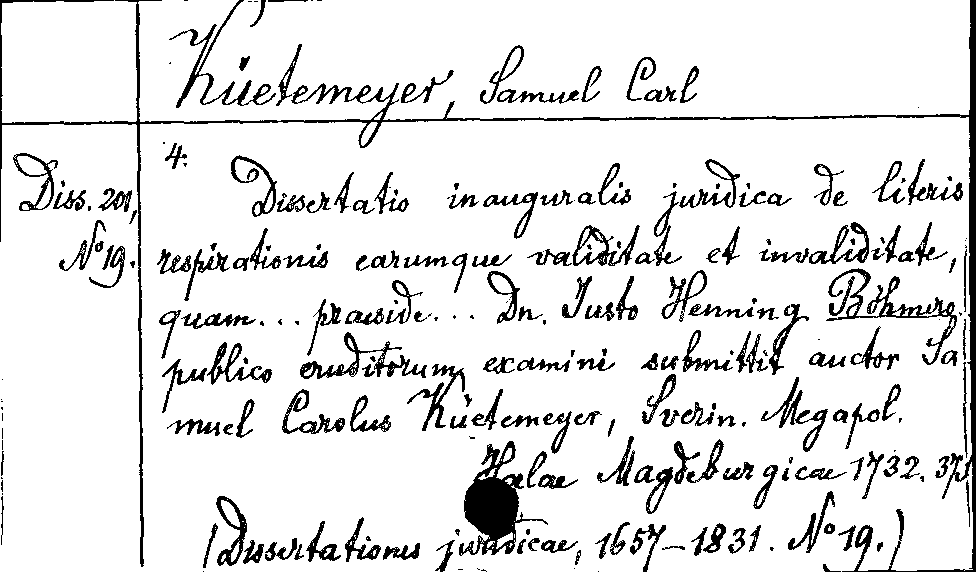 Küetemeyer, Samuel Carl
4.
Diss. 201,
No 19.
Dissertatio inauguralis juridica de literis
respirationis earumque validitate et invaliditate,
quam... praeside... Dn. Justo Henning Böhmero
publico eruditorum examini submittit auctor Sa
muel Carolus Küetemeyer, Sverin. Megapol.
Halae Magdeburgicae 1732.
(Dissertationes juridicae, 1657-1831. No 19.)